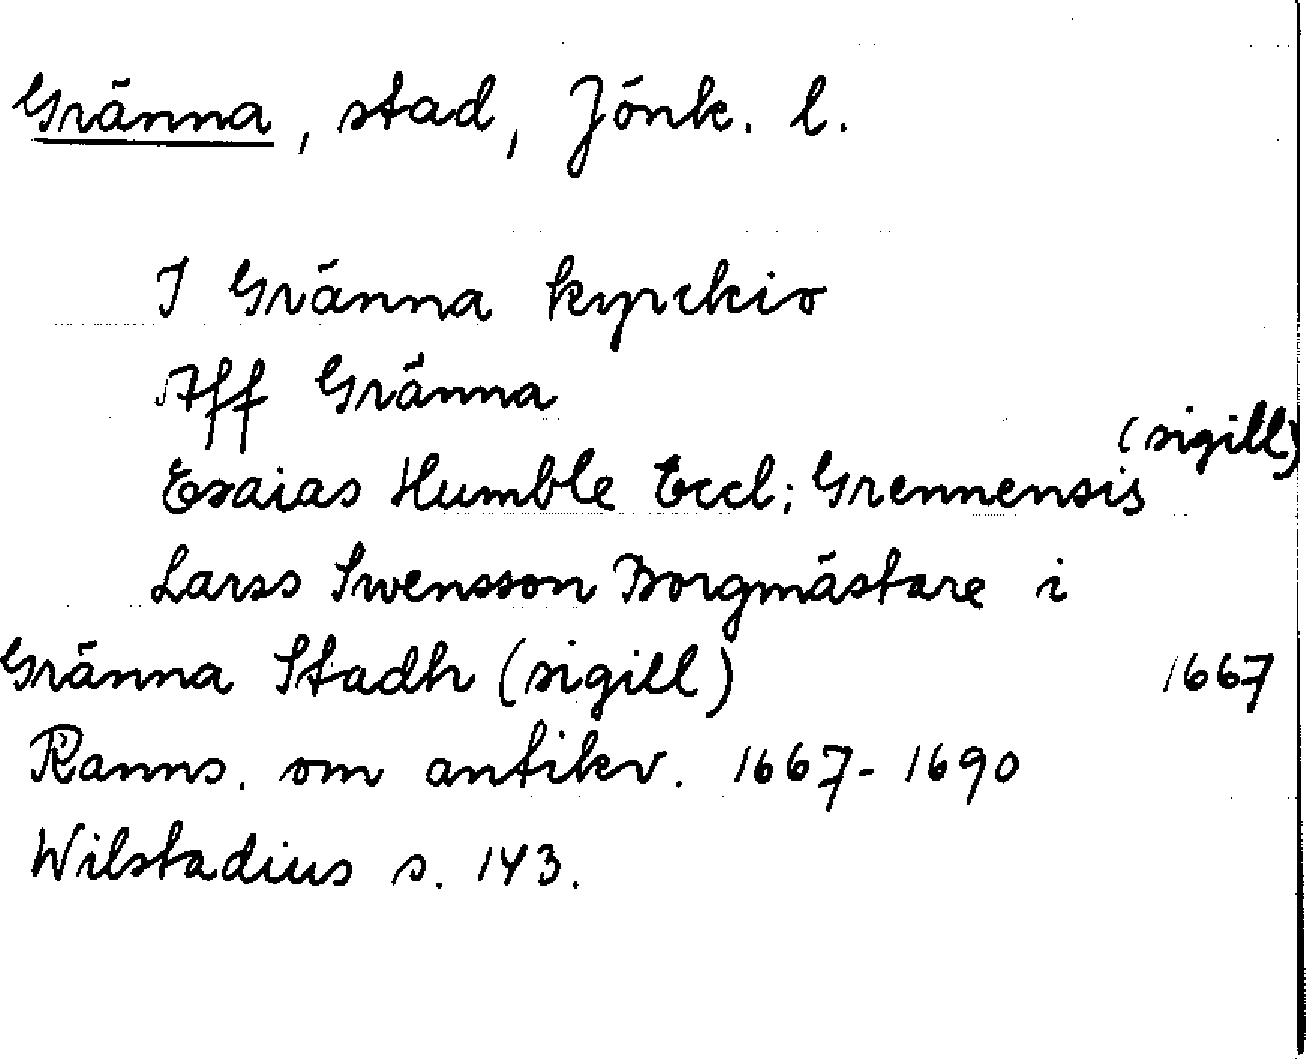 Gränna, stad, Jönk. l.
I Gränna kyrckio
Aff Gränna
(sigill)
Esaias Humble Eccl; Grennensis
Larss Swensson Borgmästare i
Gränna Stadh (sigill) 1667
Ranns. om antikv. 1667-1690
Wilstadius s. 143.